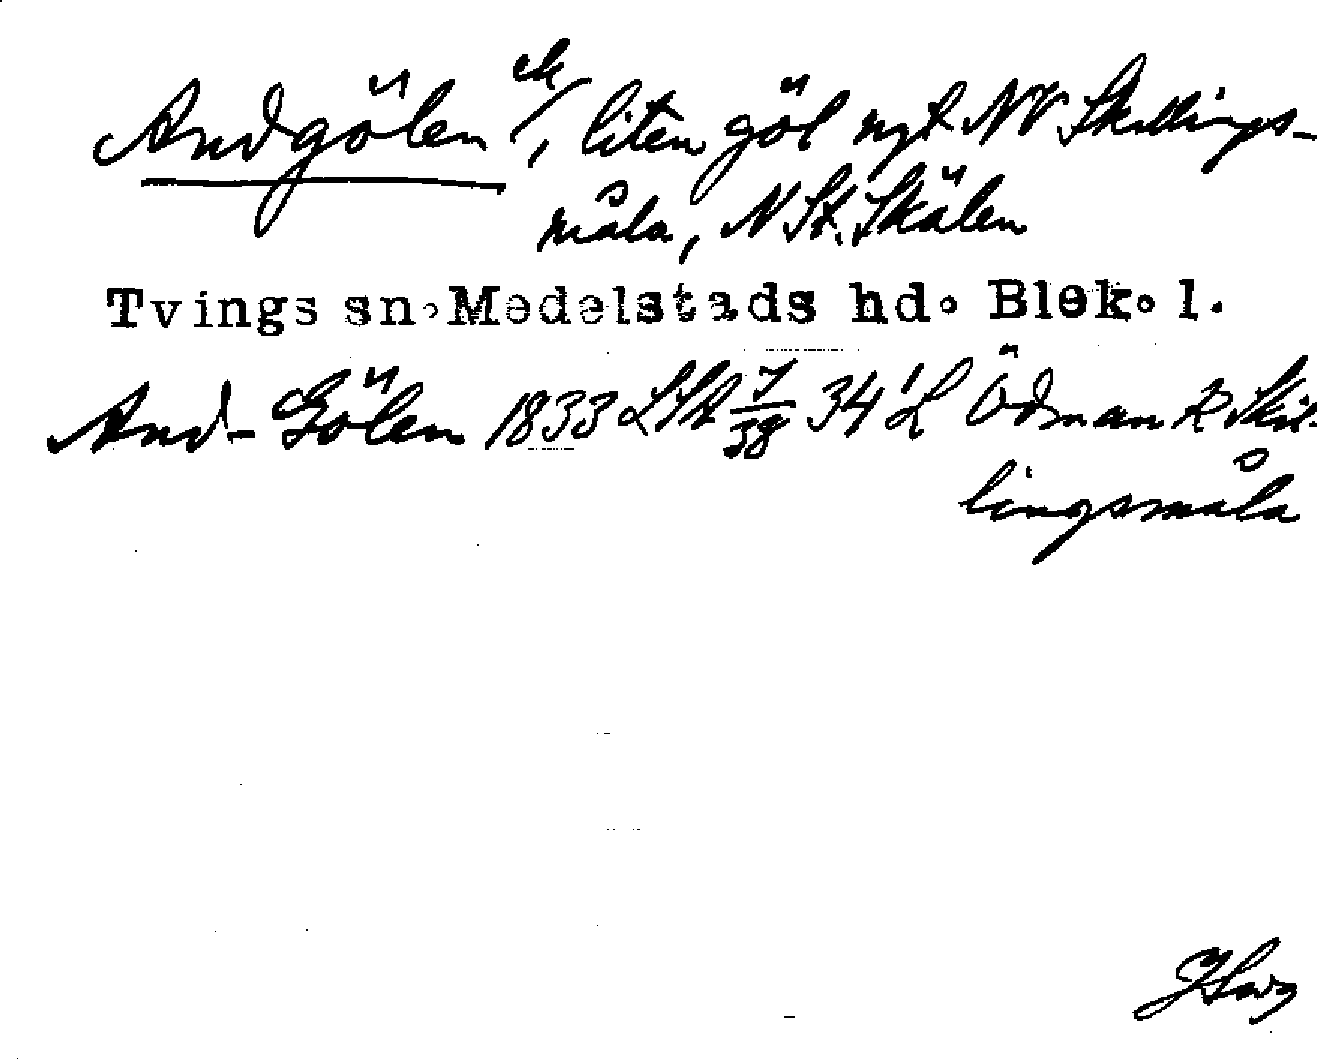 Andgölen ek/, liten göl ngt NV Skillings-
måla, N St. Skälen
Tvings sn. Medelstads hd. Blek. l.
And-Gölen 1833 LSA 7/38 34 'L Ödman R Skil-
lingsmåla